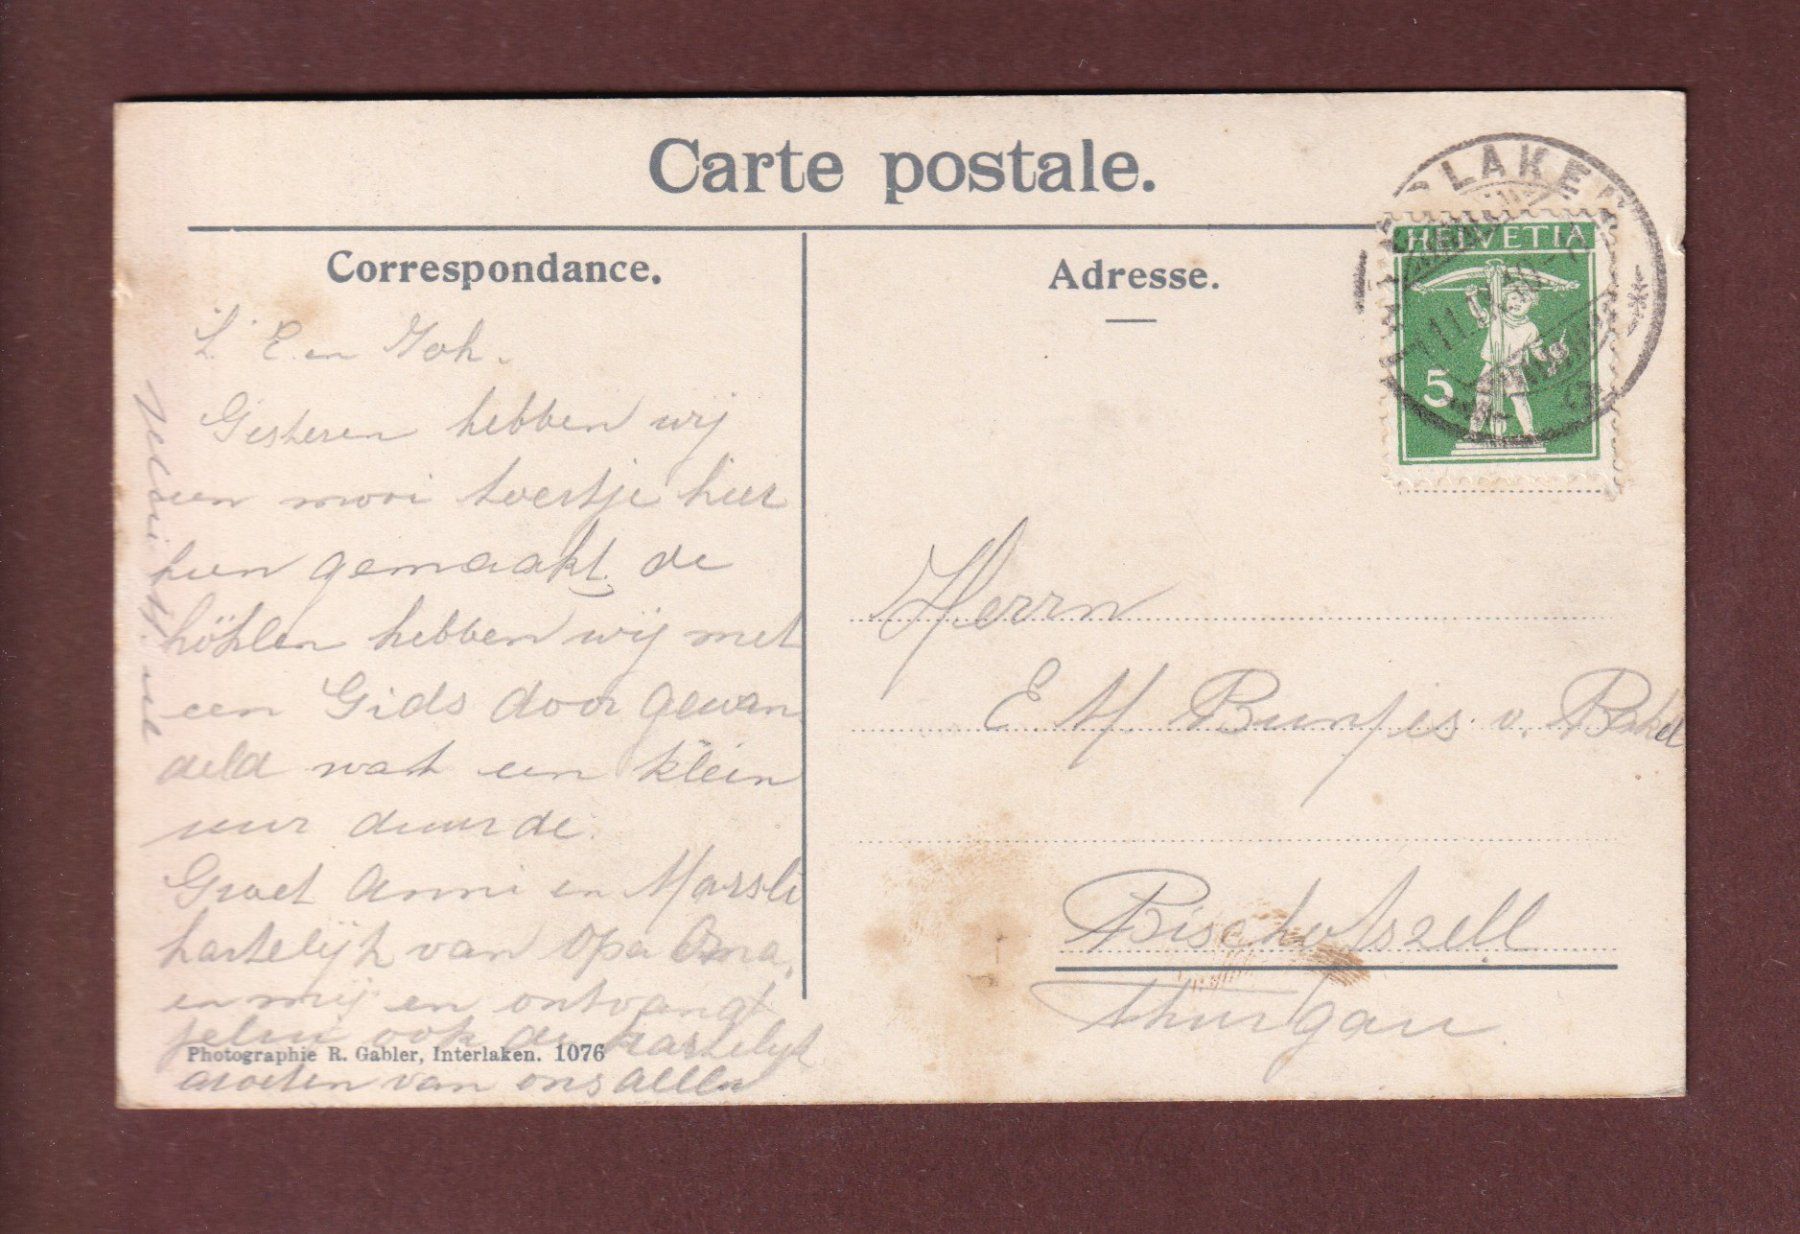 Carte postale.
Correspondance.
Adresse.
HELVETIA
5
L. E. en Joh.
Gisteren hebben wij
een mooi toertje hier
heen gemaakt, de
höhlen hebben wij met
een Gids door gewan
deld wat een klein
uur duurde.
Groet Anni en
hartelijk van Opa Oma,
en mij en ontvangt
jelui ook de hartelijk
groeten van ons allen
Photographie R. Gabler, Interlaken. 1076
Herrn
E. M. Buntjes v. Bakel
Bischofszell
Thurgau